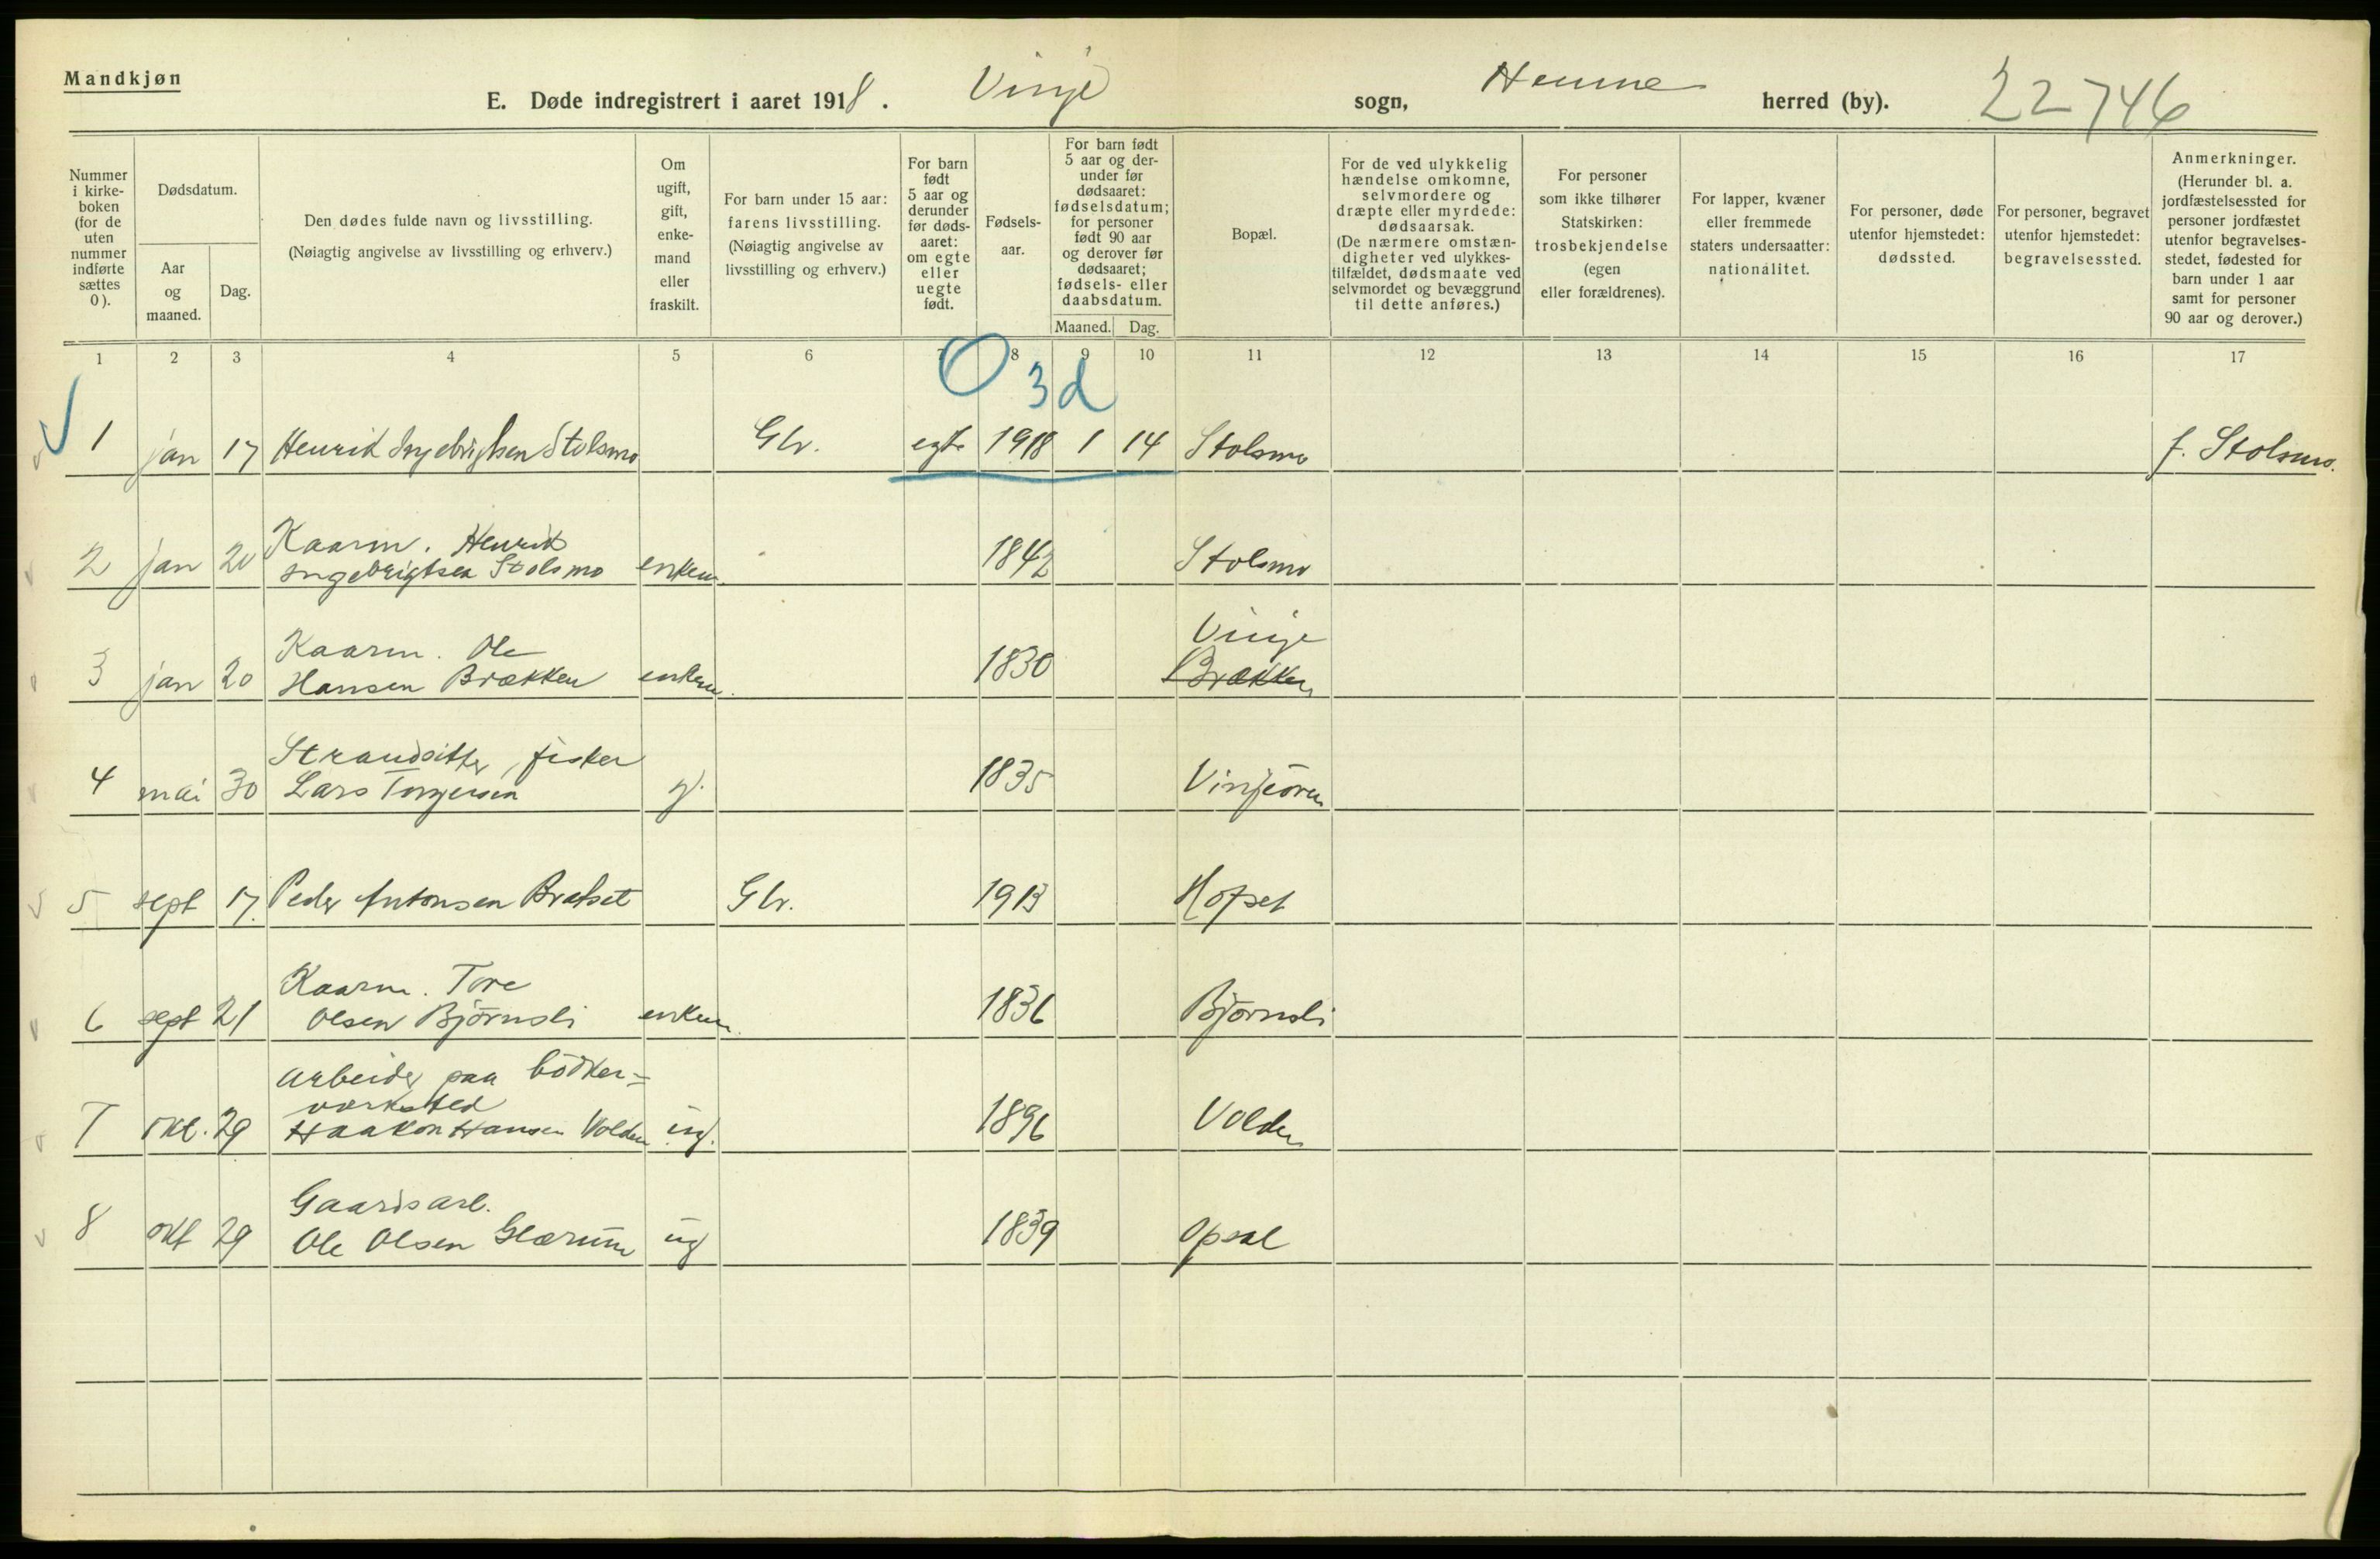 Mandkjøn
E. Døde indregistrert i aaret 1918. Vinje sogn, Hemne herred (by). 22746
Nummer i kirke-boken (for de uten nummer indførte sættes 0).
Dødsdatum.
Aar og maaned.
Dag.
Den dødes fulde navn og livsstilling.
(Nøiagtig angivelse av livsstilling og erhverv.)
Om ugift, gift, enke-mand eller fraskilt.
For barn under 15 aar: farens livsstilling.
(Nøiagtig angivelse av livsstilling og erhverv.)
For barn født 5 aar og derunder før døds-aaret: om egte eller uegte født.
Fødsels-aar.
For barn født 5 aar og der-under før dødsaaret: fødselsdatum; for personer født 90 aar og derover før dødsaaret; fødsels- eller daabsdatum.
Maaned. Dag.
Bopæl.
For de ved ulykkelig hændelse omkomne, selvmordere og dræpte eller myrdede: dødsaarsak.
(De nærmere omstæn-digheter ved ulykkes-tilfældet, dødsmaate ved selvmordet og bevæggrund til dette anføres.)
For personer som ikke tilhører Statskirken: trosbekjendelse (egen eller forældrenes).
For lapper, kvæner eller fremmede staters undersaatter: nationalitet.
For personer, døde utenfor hjemstedet: dødssted.
For personer, begravet utenfor hjemstedet: begravelsessted.
Anmerkninger.
(Herunder bl. a. jordfæstelsessted for personer jordfæstet utenfor begravelses-stedet, fødested for barn under 1 aar samt for personer 90 aar og derover.)
1 2 3 4 5 6 7 8 9 10 11 12 13 14 15 16 17
0 3d
1 jan 17 Henrik Ingebrigtsen Stolsmo Gbr. egte 1918 1 14 Stolsmo f. Stolsmo.
Kaarm. Henrik
2 jan 20 Ingebrigtsen Stolsmo enkem. 1842 Stolsmo
Kaarm. Ole Vinje
3 jan 20 Hansen Brækken enkem. 1830 Brækken
Strandsitter, fisker
4 mai 30 Lars Torgersen g. 1835 Vinjeören
5 sept 17. Peder Antonsen Bratset Gbr. 1913 Hofset
Kaarm. Tore
6 sept 21 Olsen Björnsli enkem. 1836 Björnsli
Arbeider paa bödker=
verksted
7 okt. 29 Haakon Hansen Volden ug. 1896 Volden
Gaardsarb.
8 okt 29 Ole Olsen Glærum ug 1839 Opsal